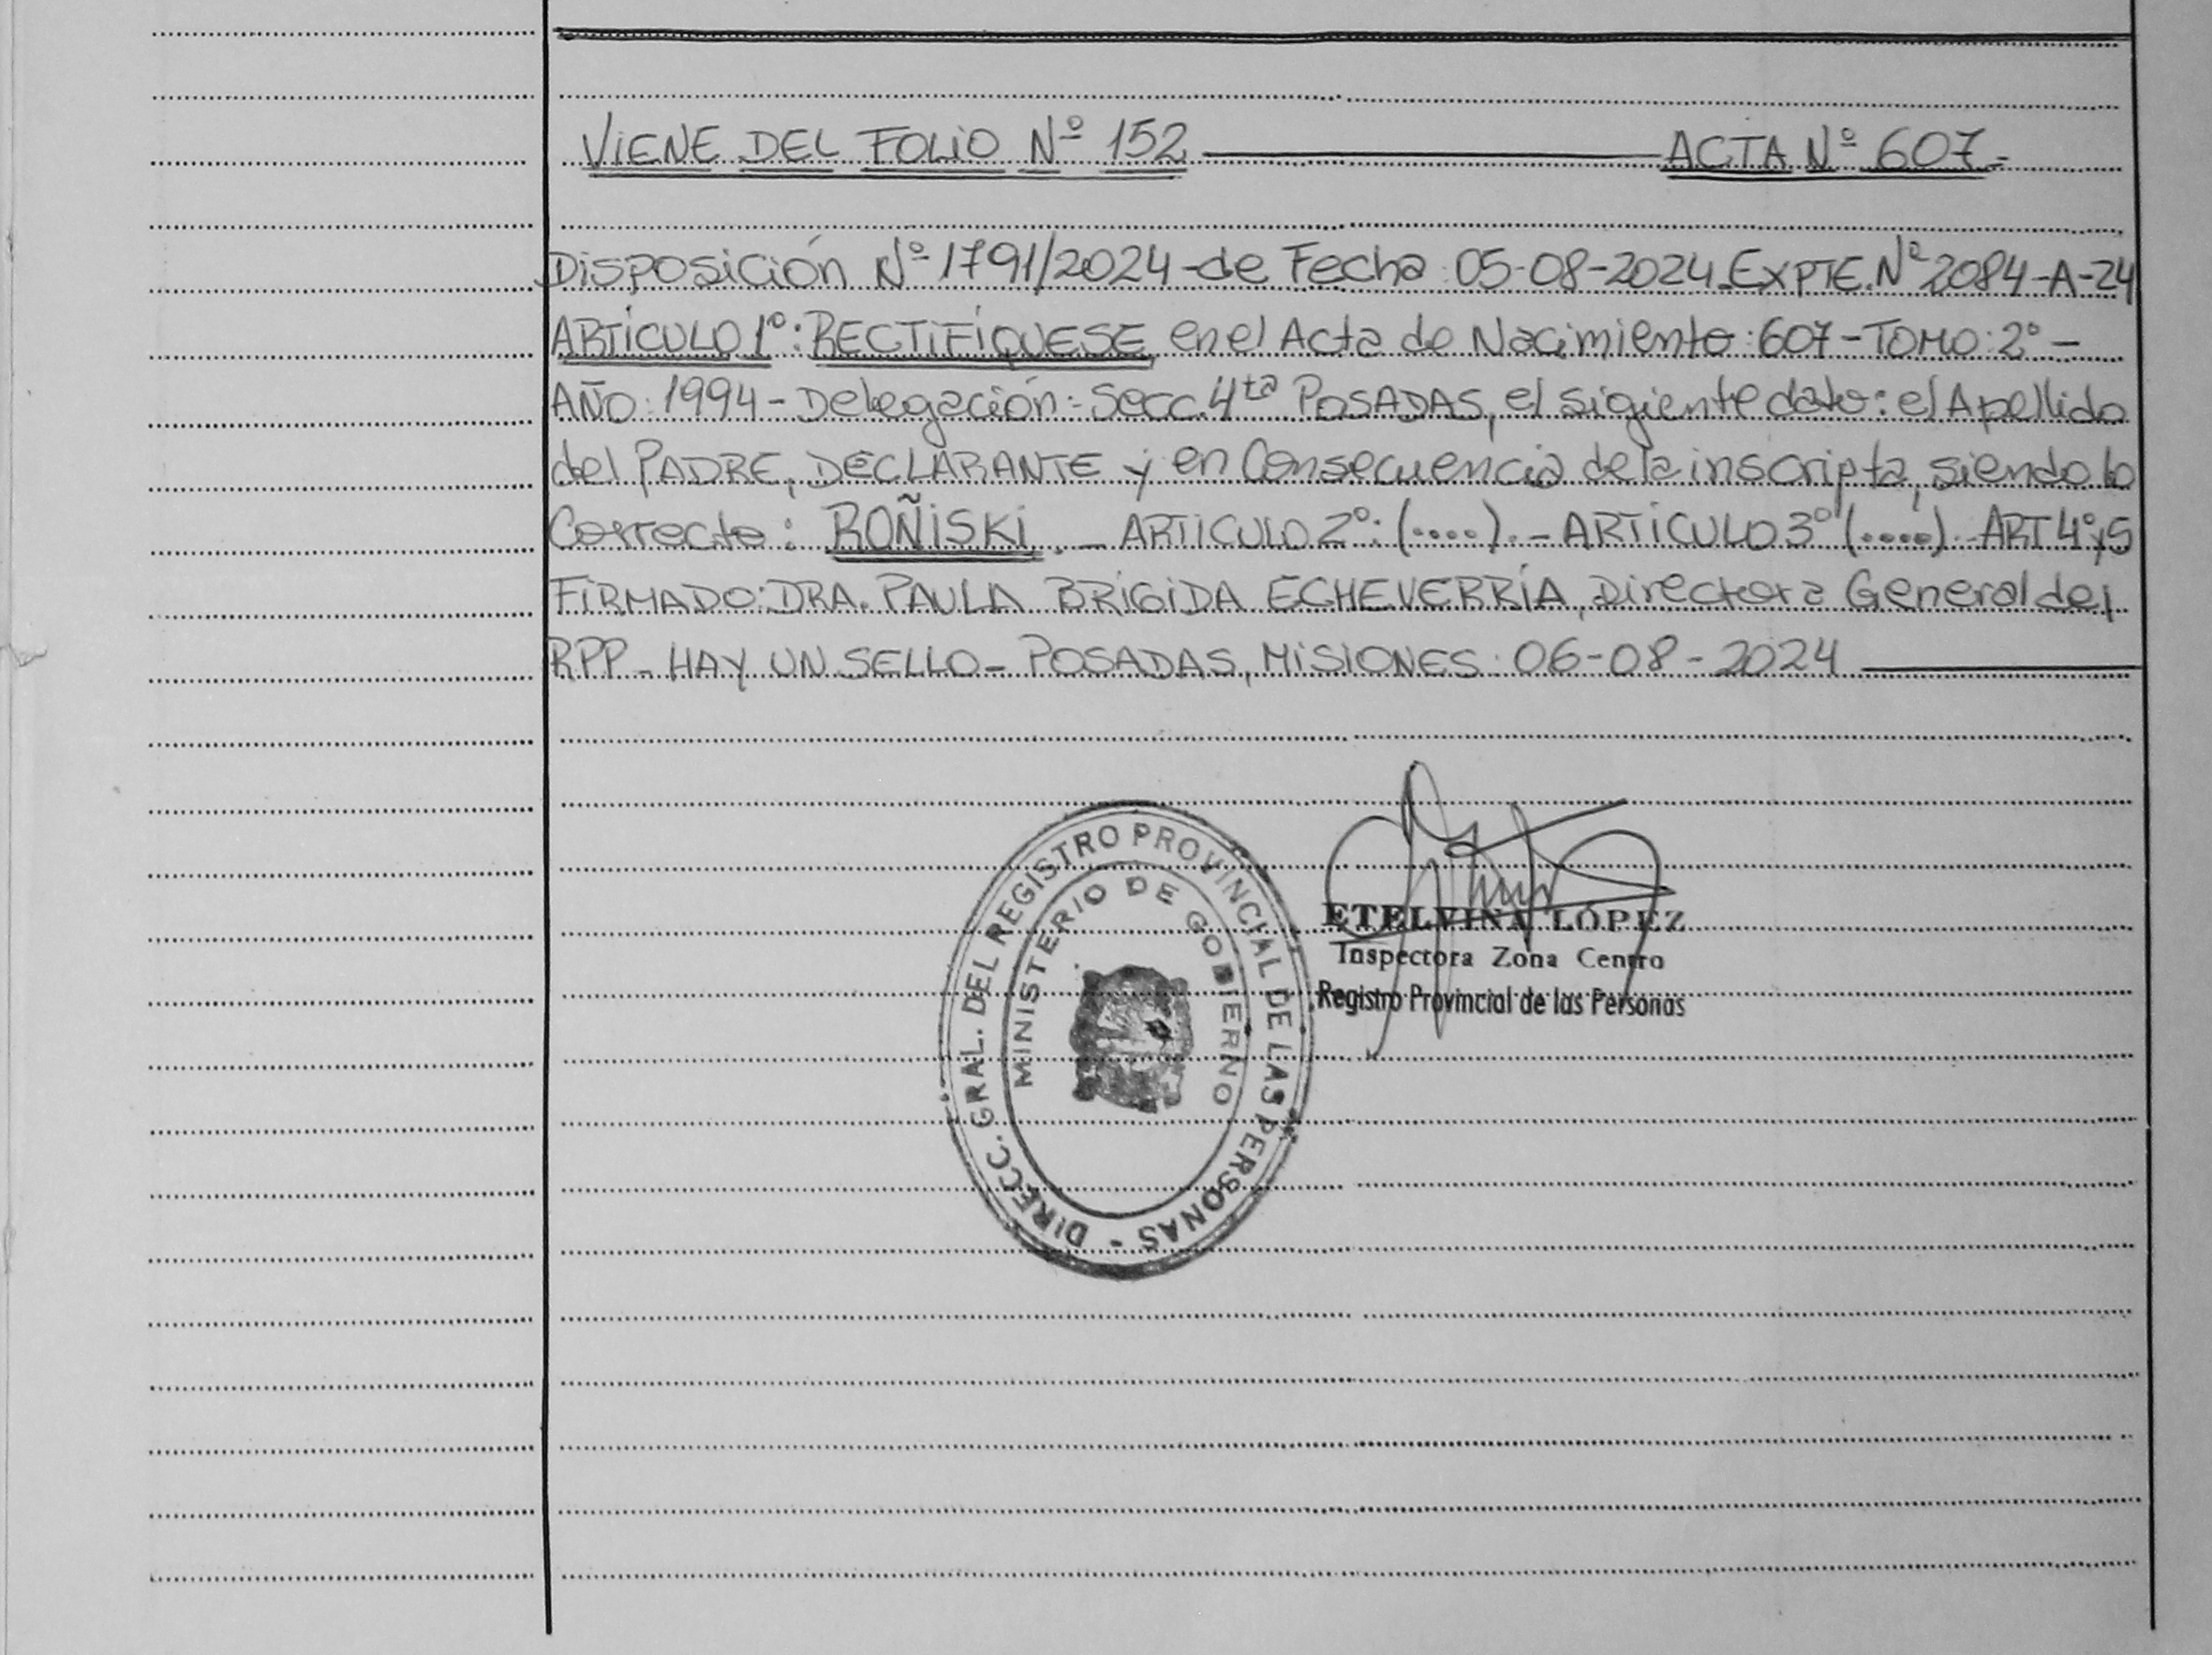 VIENE DEL FOLIO Nº 152 ACTA Nº 607-
Disposición Nº 1791/2024-de Fecha 05-08-2024 EXPTE. Nº 2084-A-24
ARTÍCULO 1º: RECTIFÍQUESE, en el Acta de Nacimiento: 607-TOMO: 2º-
AÑO: 1994-Delegación: Secc. 4ta POSADAS, el sigiente dato: el Apellido
del PADRE, DECLARANTE y en Consecuencia de la inscripta, siendo lo
Correcto: ROÑISKI. - ARTICULO 2º: (....). - ARTÍCULO 3º (.....) - ART 4º y 5
FIRMADO: DRA. PAULA BRÍGIDA ECHEVERRÍA, Directora General del
RPP - HAY UN SELLO - POSADAS, MISIONES: 06-08-2024
DIRECC. GRAL. DEL REGISTRO PROVINCIAL DE LAS PERSONAS -
MINISTERIO DE GOBIERNO
ETELVINA LÓPEZ
Inspectora Zona Centro
Registro Provincial de las Personas